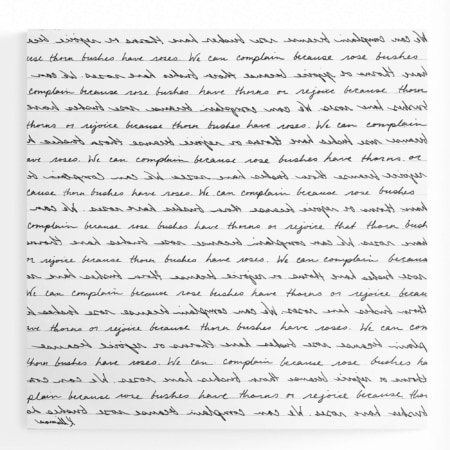 We can complain because rose bushes have thorns or rejoice beca
use thorn bushes have roses. We can complain because rose bushes
have thorns or rejoice because thorn bushes have roses. We can
complain because rose bushes have thorns or rejoice because thorn
bushes have roses. We can complain because rose bushes have
thorns or rejoice because thorn bushes have roses. We can complain
because rose bushes have thorns or rejoice because thorn bushes h
ave roses. We can complain because rose bushes have thorns or
rejoice because thorn bushes have roses. We can complain b
cause thorn bushes have roses. We can complain because rose bushes
have thorns or rejoice because thorn bushes have roses. We can
complain because rose bushes have thorns or rejoice that thorn bush
have roses. We can complain because rose bushes have thorn
r rejoice because thorn bushes have roses. We can complain becau
rose bushes have thorns or rejoice because thorn bushes have ro
We can complain because rose bushes have thorns or rejoice becau
thorn bushes have roses. We can complain because rose bushes h
ave thorns or rejoice because thorn bushes have roses. We can com
plain because rose bushes have thorns or rejoice because
thorn bushes have roses. We can complain because rose bushes ha
thorns or rejoice because thorn bushes have roses. We can com
plain because rose bushes have thorns or rejoice because thor
bushes have roses. We can complain because rose bushes ha